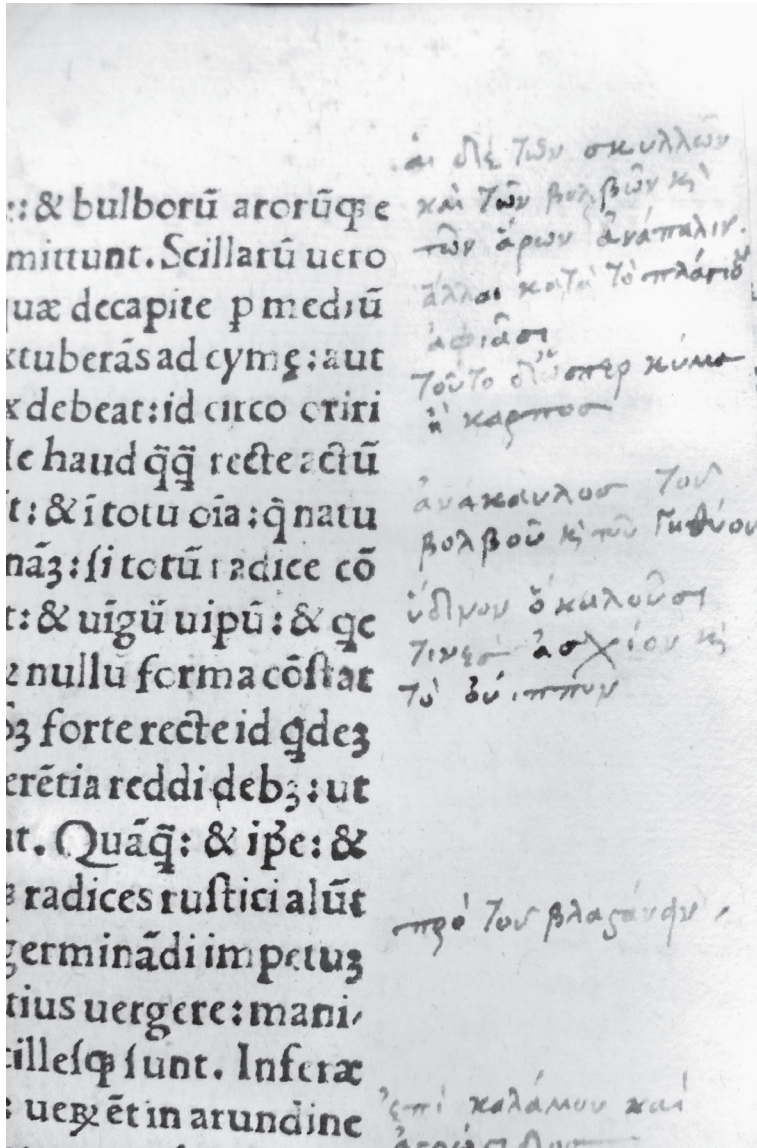 :: & bulborū arorūqꝫ e
mittunt. Scillarū uero
quæ decapite ꝑ mediū
xtuberãs ad cymę: aut
x debeat: id circo oriri
le haud q̄q̄ recte actū
t: & ītotu oīa: q̄ natu
nãꝫ: si totū radice cō
t: & uīgū uipū: & qe
nullū forma cōstat
ꝫ forte recte id qdeꝫ
erētia reddi debꝫ: ut
ut. Quāq̄: & ip̄e: &
radices rustici alūt
germinādi impetuꝫ
tius uergere: mani-
cillesqꝫ sunt. Inferæ
: ueꝝ ēt in arundine
αι δὲ τῶν σκυλλῶν
καὶ τῶν βολβῶν κ̀
τῶν ἄρων ἀνάπαλιν.
ἄλλαι κατὰ τὸ πλάγιον
ἀφιᾶσι
τοῦτο διόπερ κύμα
ἢ καρπος
ἀνάκαυλος τοῦ
βολβοῦ κ̀ τοῦ γηθύου
ὕδινον ὃ καλοῦσι
τινες ἀσχίον κ̀
τὸ οὐιππυν
πρὸ τοῦ βλαϛάνειν
ἐπὶ καλάμου καὶ